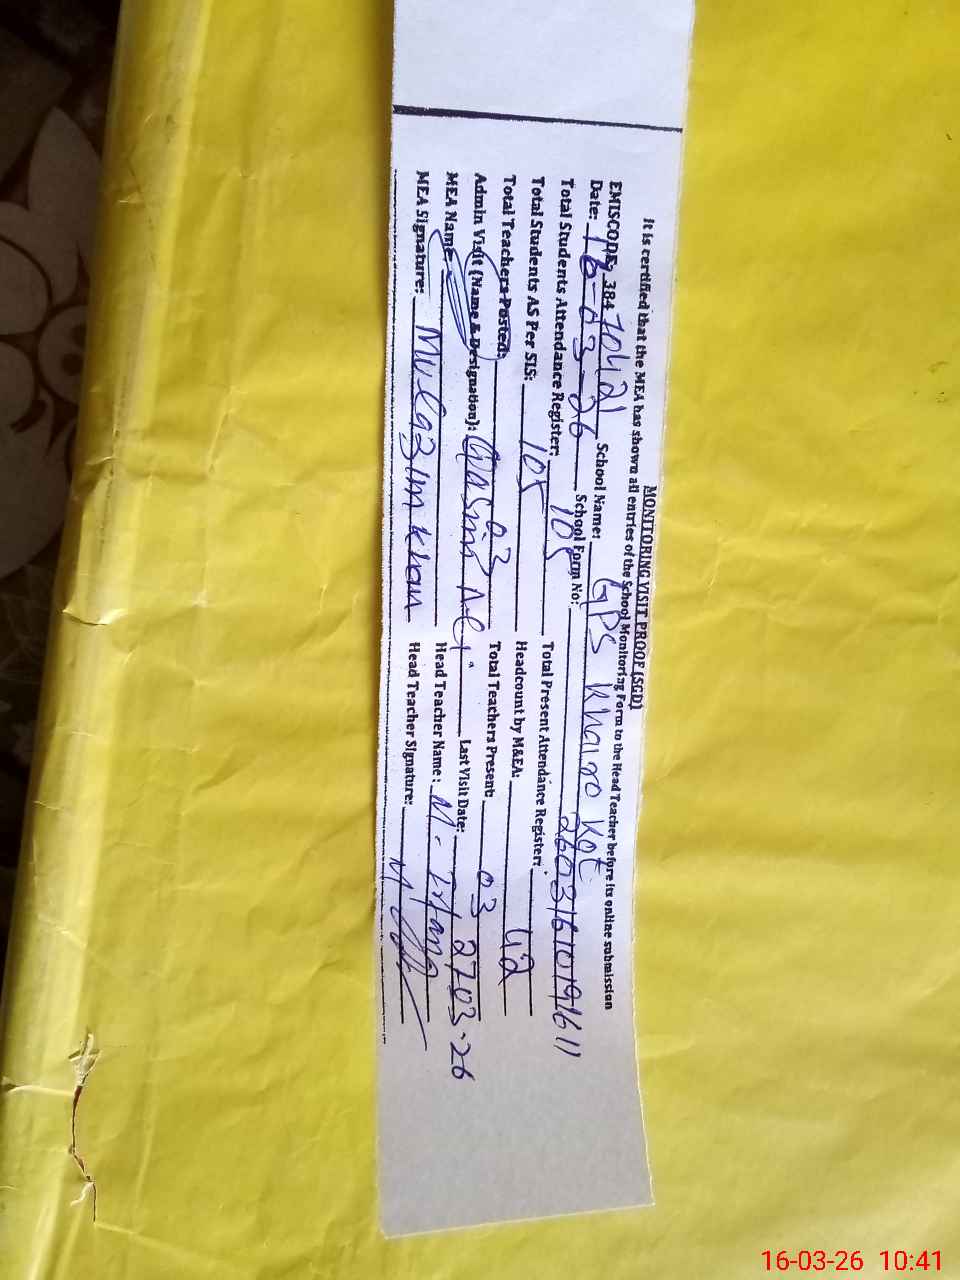 MONITORING VISIT PROOF (SGD)
It is certified that the MEA has shown all entries of the School Monitoring Form to the Head Teacher before its online submission
EMISCODE: 38470421 School Name: GPS Khairo Kot
Date: 16-03-26 School Form No: 26031610191611
Total Students Attendance Register: 105 Total Present Attendance Register:
Total Students AS Per SIS: 105 Headcount by M&EA: 42
Total Teachers Posted: 03 Total Teachers Present: 03
Admin Visit (Name & Designation): Qasim Ali Last Visit Date: 2703-26
MEA Name: Head Teacher Name: M. Irfan
MEA Signature: Mulazim Khan Head Teacher Signature:
16-03-26 10:41